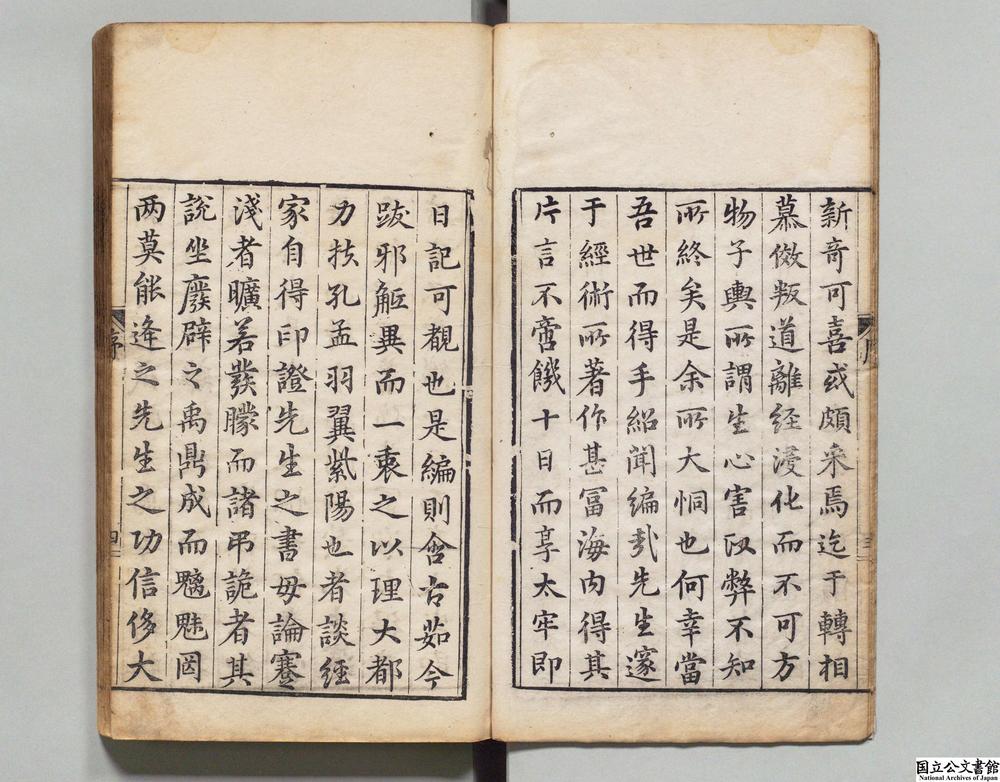 新奇可喜或頗采焉迄于轉相
慕傚叛道離经漫化而不可方
物子輿所謂生心害政弊不知
所終矣是余所大恫也何幸當
吾世而得手紹聞編㦲先生邃
于經術所著作甚冨海内得其
片言不啻饑十日而享太牢即
日記可覩也是編則含古茹今
跋邪觝異而一衷之以理大都
力扶孔孟羽翼紫陽也者談经
家自得印證先生之書毋論蹇
淺者曠若發矇而諸弔詭者其
說坐廢辟之禹鼎成而魑魅罔
两莫能逢之先生之功信侈大
序
三
序
四
国立公文書館
National Archives of Japan